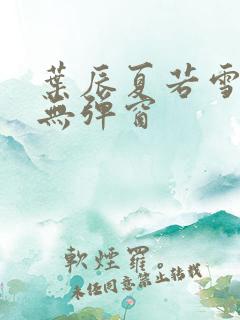 葉辰夏若雪
無彈窗
軟煙羅。
未经同意禁止转载